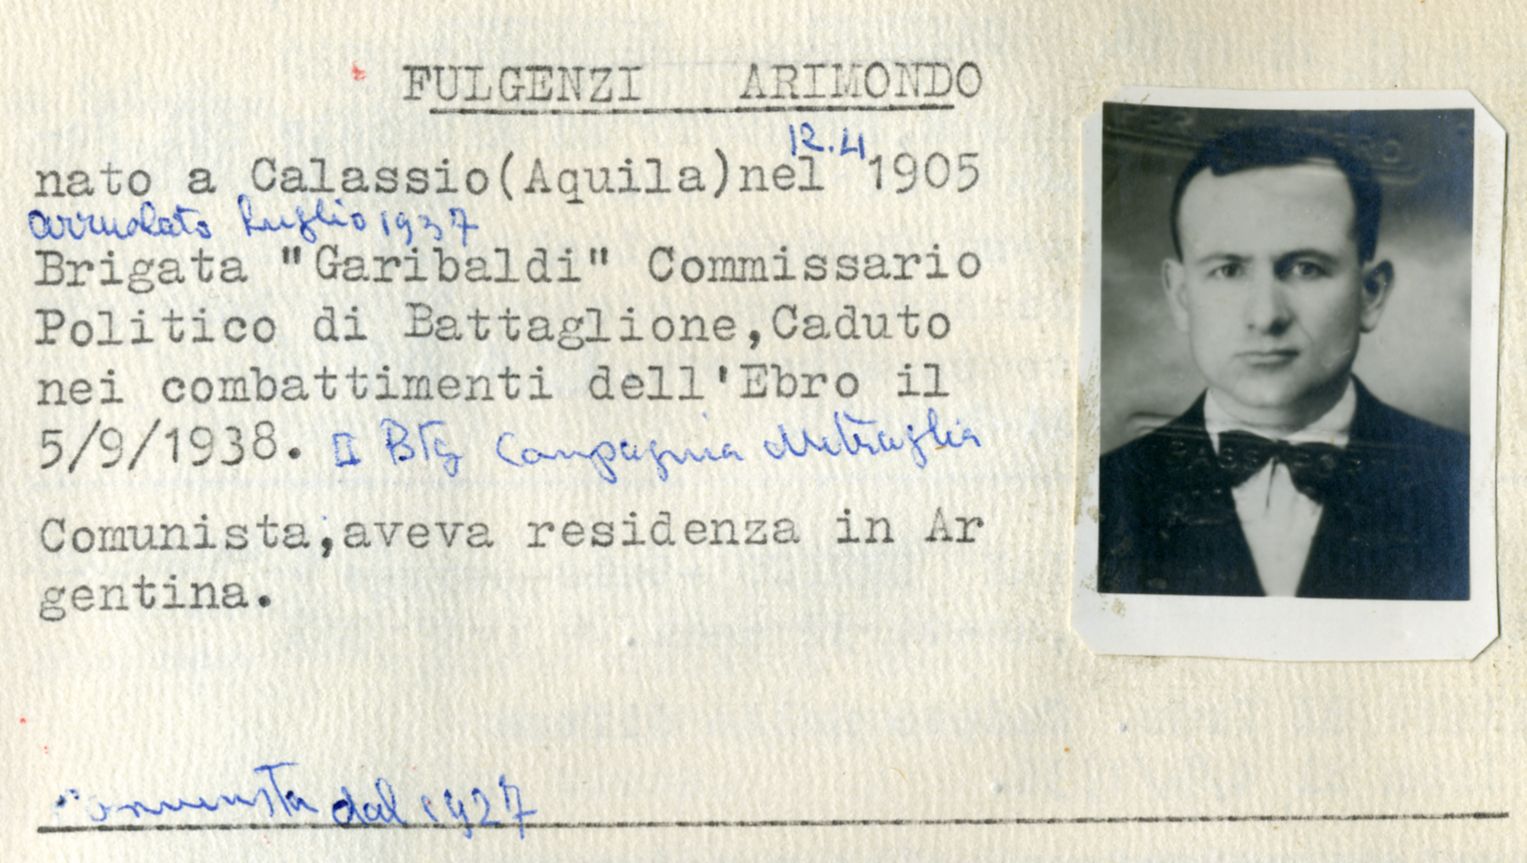 FULGENZI ARIMONDO
12.4
nato a Calassio(Aquila)nel 1905
arruolato luglio 1937
Brigata "Garibaldi" Commissario
Politico di Battaglione,Caduto
nei combattimenti dell'Ebro il
5/9/1938. II Btg Compagnia Mitraglia
Comunista,aveva residenza in Ar
gentina.
Comunista dal 1927